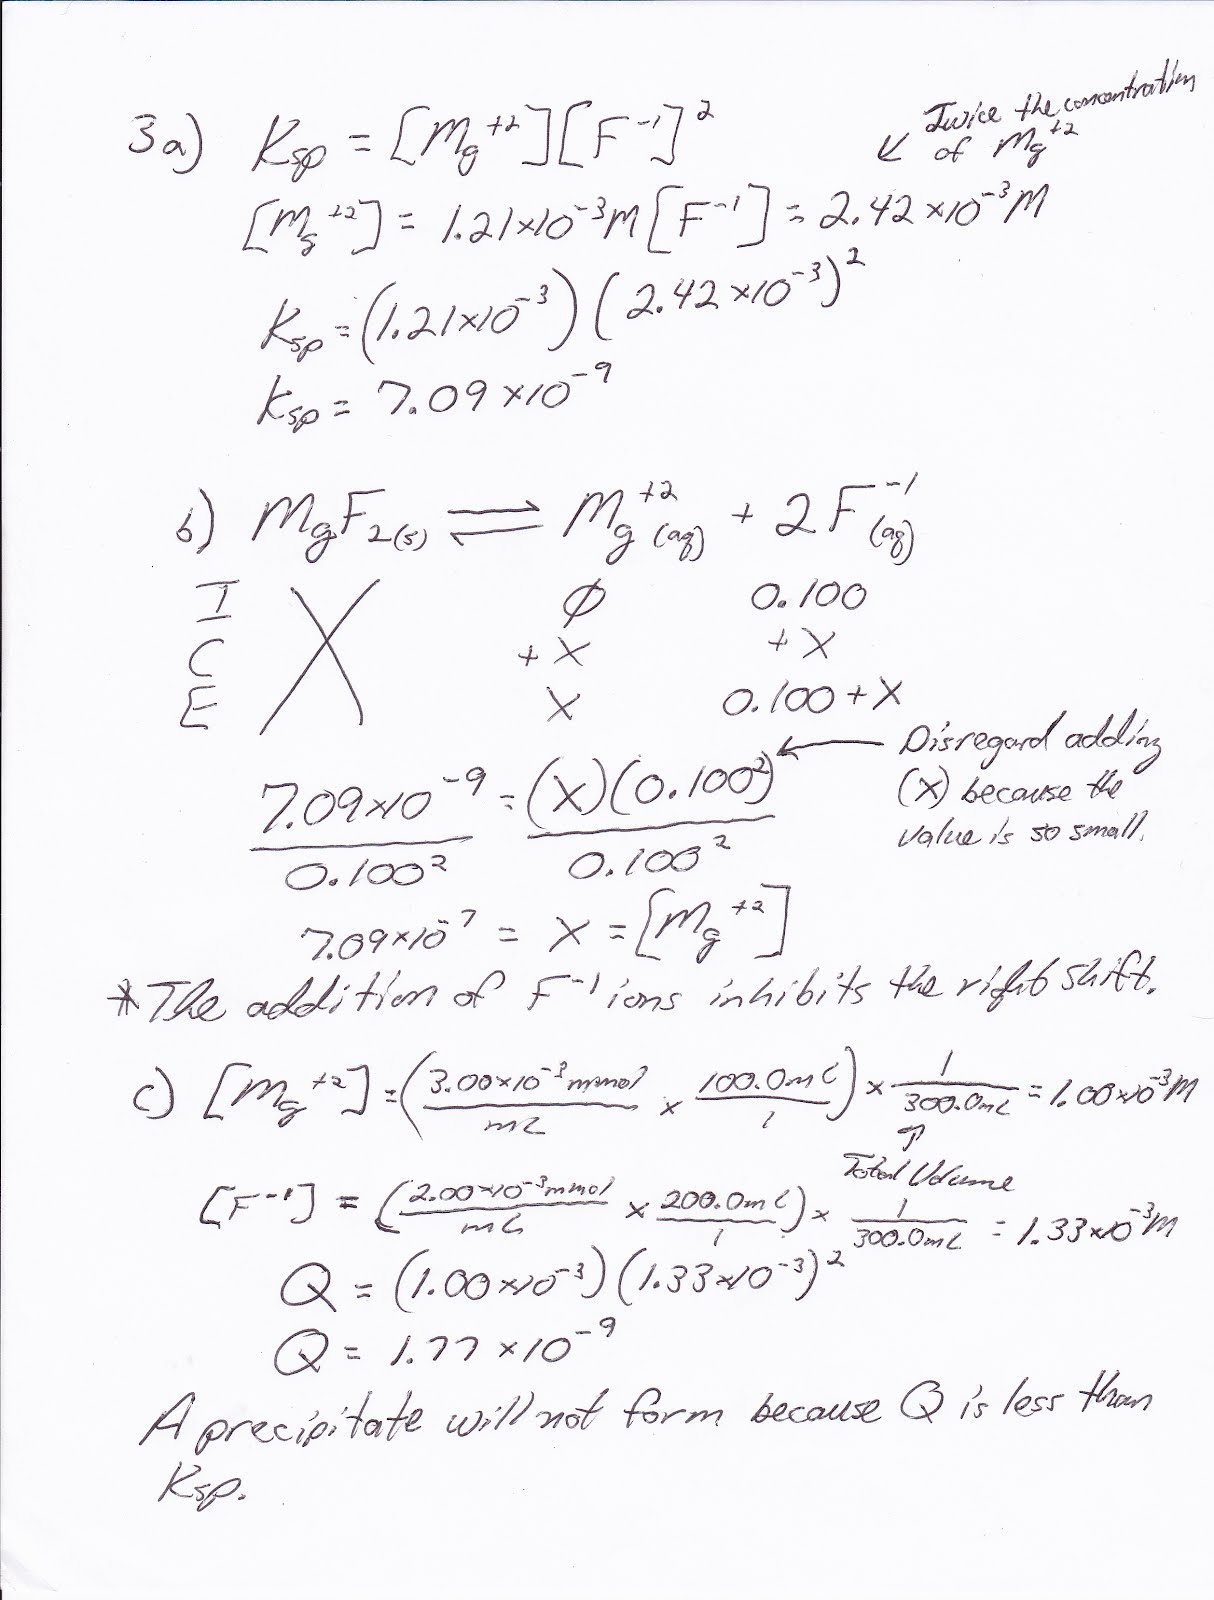 3a) Ksp = [Mg⁺²][F⁻¹]²
Twice the concentration
↙ of Mg⁺²
[Mg⁺²] = 1.21×10⁻³M [F⁻¹] = 2.42×10⁻³M
Ksp = (1.21×10⁻³)(2.42×10⁻³)²
Ksp = 7.09×10⁻⁹
b) MgF₂(s) ⇌ Mg⁺²(aq) + 2F⁻¹(aq)
I ∅ 0.100
C +X +X
E X 0.100+X
← Disregard adding
(X) because the
value is so small.
7.09×10⁻⁹ = (X)(0.100²)
0.100² 0.100²
7.09×10⁻⁷ = X = [Mg⁺²]
*The addition of F⁻¹ ions inhibits the right shift.
c) [Mg⁺²] = (3.00×10⁻³mmol/mL × 100.0mL/1) × 1/300.0mL = 1.00×10⁻³M
↑
Total Volume
[F⁻¹] = (2.00×10⁻³mmol/mL × 200.0mL/1) × 1/300.0mL = 1.33×10⁻³M
Q = (1.00×10⁻³)(1.33×10⁻³)²
Q = 1.77×10⁻⁹
A precipitate will not form because Q is less than
Ksp.